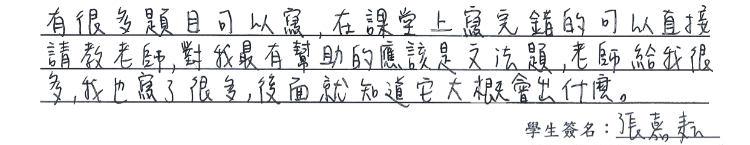 有很多題目可以寫,在課堂上寫完錯的可以直接
請教老師,對我最有幫助的應該是文法題,老師給我很
多,我也寫了很多,後面就知道它大概會出什麼。
學生簽名:張嘉耘